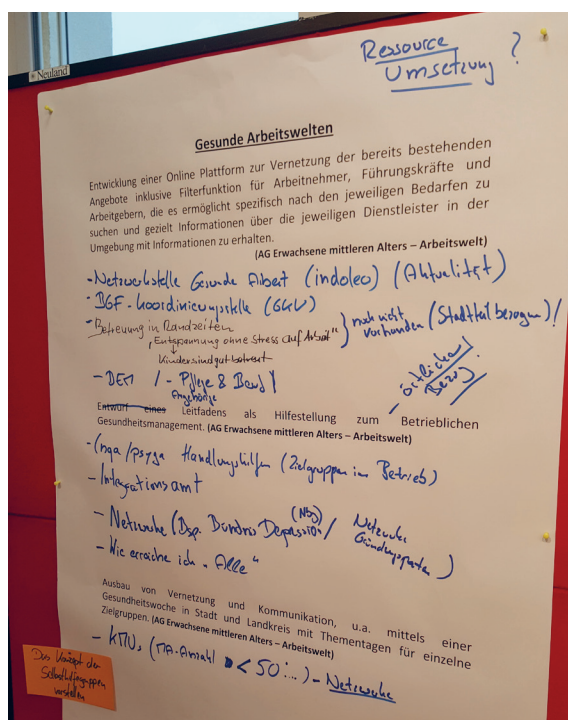 Neuland
Ressource
Umsetzung ?
Gesunde Arbeitswelten
Entwicklung einer Online Plattform zur Vernetzung der bereits bestehenden
Angebote inklusive Filterfunktion für Arbeitnehmer, Führungskräfte und
Arbeitgebern, die es ermöglicht spezifisch nach den jeweiligen Bedarfen zu
suchen und gezielt Informationen über die jeweiligen Dienstleister in der
Umgebung mit Informationen zu erhalten.
(AG Erwachsene mittleren Alters – Arbeitswelt)
- Netzwerkstelle Gesunde Arbeit (indoleo) (Aktualität)
- BGF-Koordinierungsstelle (GKV)
- Betreuung in Randzeiten
„Entspannung ohne Stress auf Arbeit"
Kinder sind gut betreut
} noch nicht
vorhanden (Stadtteilbezogen)!
- BEM / - Pflege & Beruf
Angehörige
örtlicher
Bezug
Entwurf eines Leitfadens als Hilfestellung zum Betrieblichen
Gesundheitsmanagement. (AG Erwachsene mittleren Alters – Arbeitswelt)
- inqa/psyga Handlungshilfen (Zielgruppen im Betrieb)
- Integrationsamt
- Netzwerke (Bsp. Bündnis Depression /
Netzwerke
- Wie erreiche ich „Alle"
Ausbau von Vernetzung und Kommunikation, u.a. mittels einer
Gesundheitswoche in Stadt und Landkreis mit Thementagen für einzelne
Zielgruppen. (AG Erwachsene mittleren Alters – Arbeitswelt)
- KMUs (MA-Anzahl < 50 ...) - Netzwerke
Das Konzept der
Selbsthilfegruppen
vorstellen